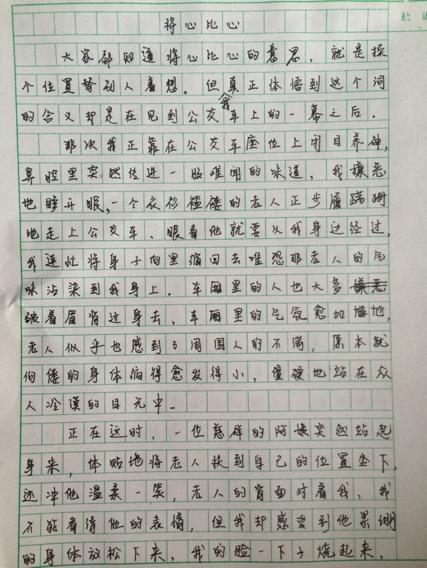 将心比心
大家都知道将心比心的意思，就是换
个位置替别人着想。但我真正体悟到这个词
的含义却是在见到公交车上的一幕之后。
那次我正靠在公交车座位上闭目养神，
鼻腔里突然传进一股难闻的味道，我嫌恶
地睁开眼，一个衣衫褴褛的老人正步履蹒跚
地走上公交车、眼看他就要从我身边经过，
我连忙将身子向里缩回去唯恐那老人的气
味沾染到我身上。车厢里的人也大多
皱着眉背过身去，车厢里的气氛愈加尴尬，
老人似乎也感到了周围人的不满，原本就
佝偻的身体缩得愈发得小，僵硬地站在众
人冷漠的目光中。
正在这时，一位慈祥的阿姨突然站起
身来，体贴地将老人扶到自己的位置坐下，
还冲他温柔一笑，老人的背面对着我，我
不能看清他的表情，但我却感受到他紧绷
的身体放松下来，我的脸一下子烧起来，